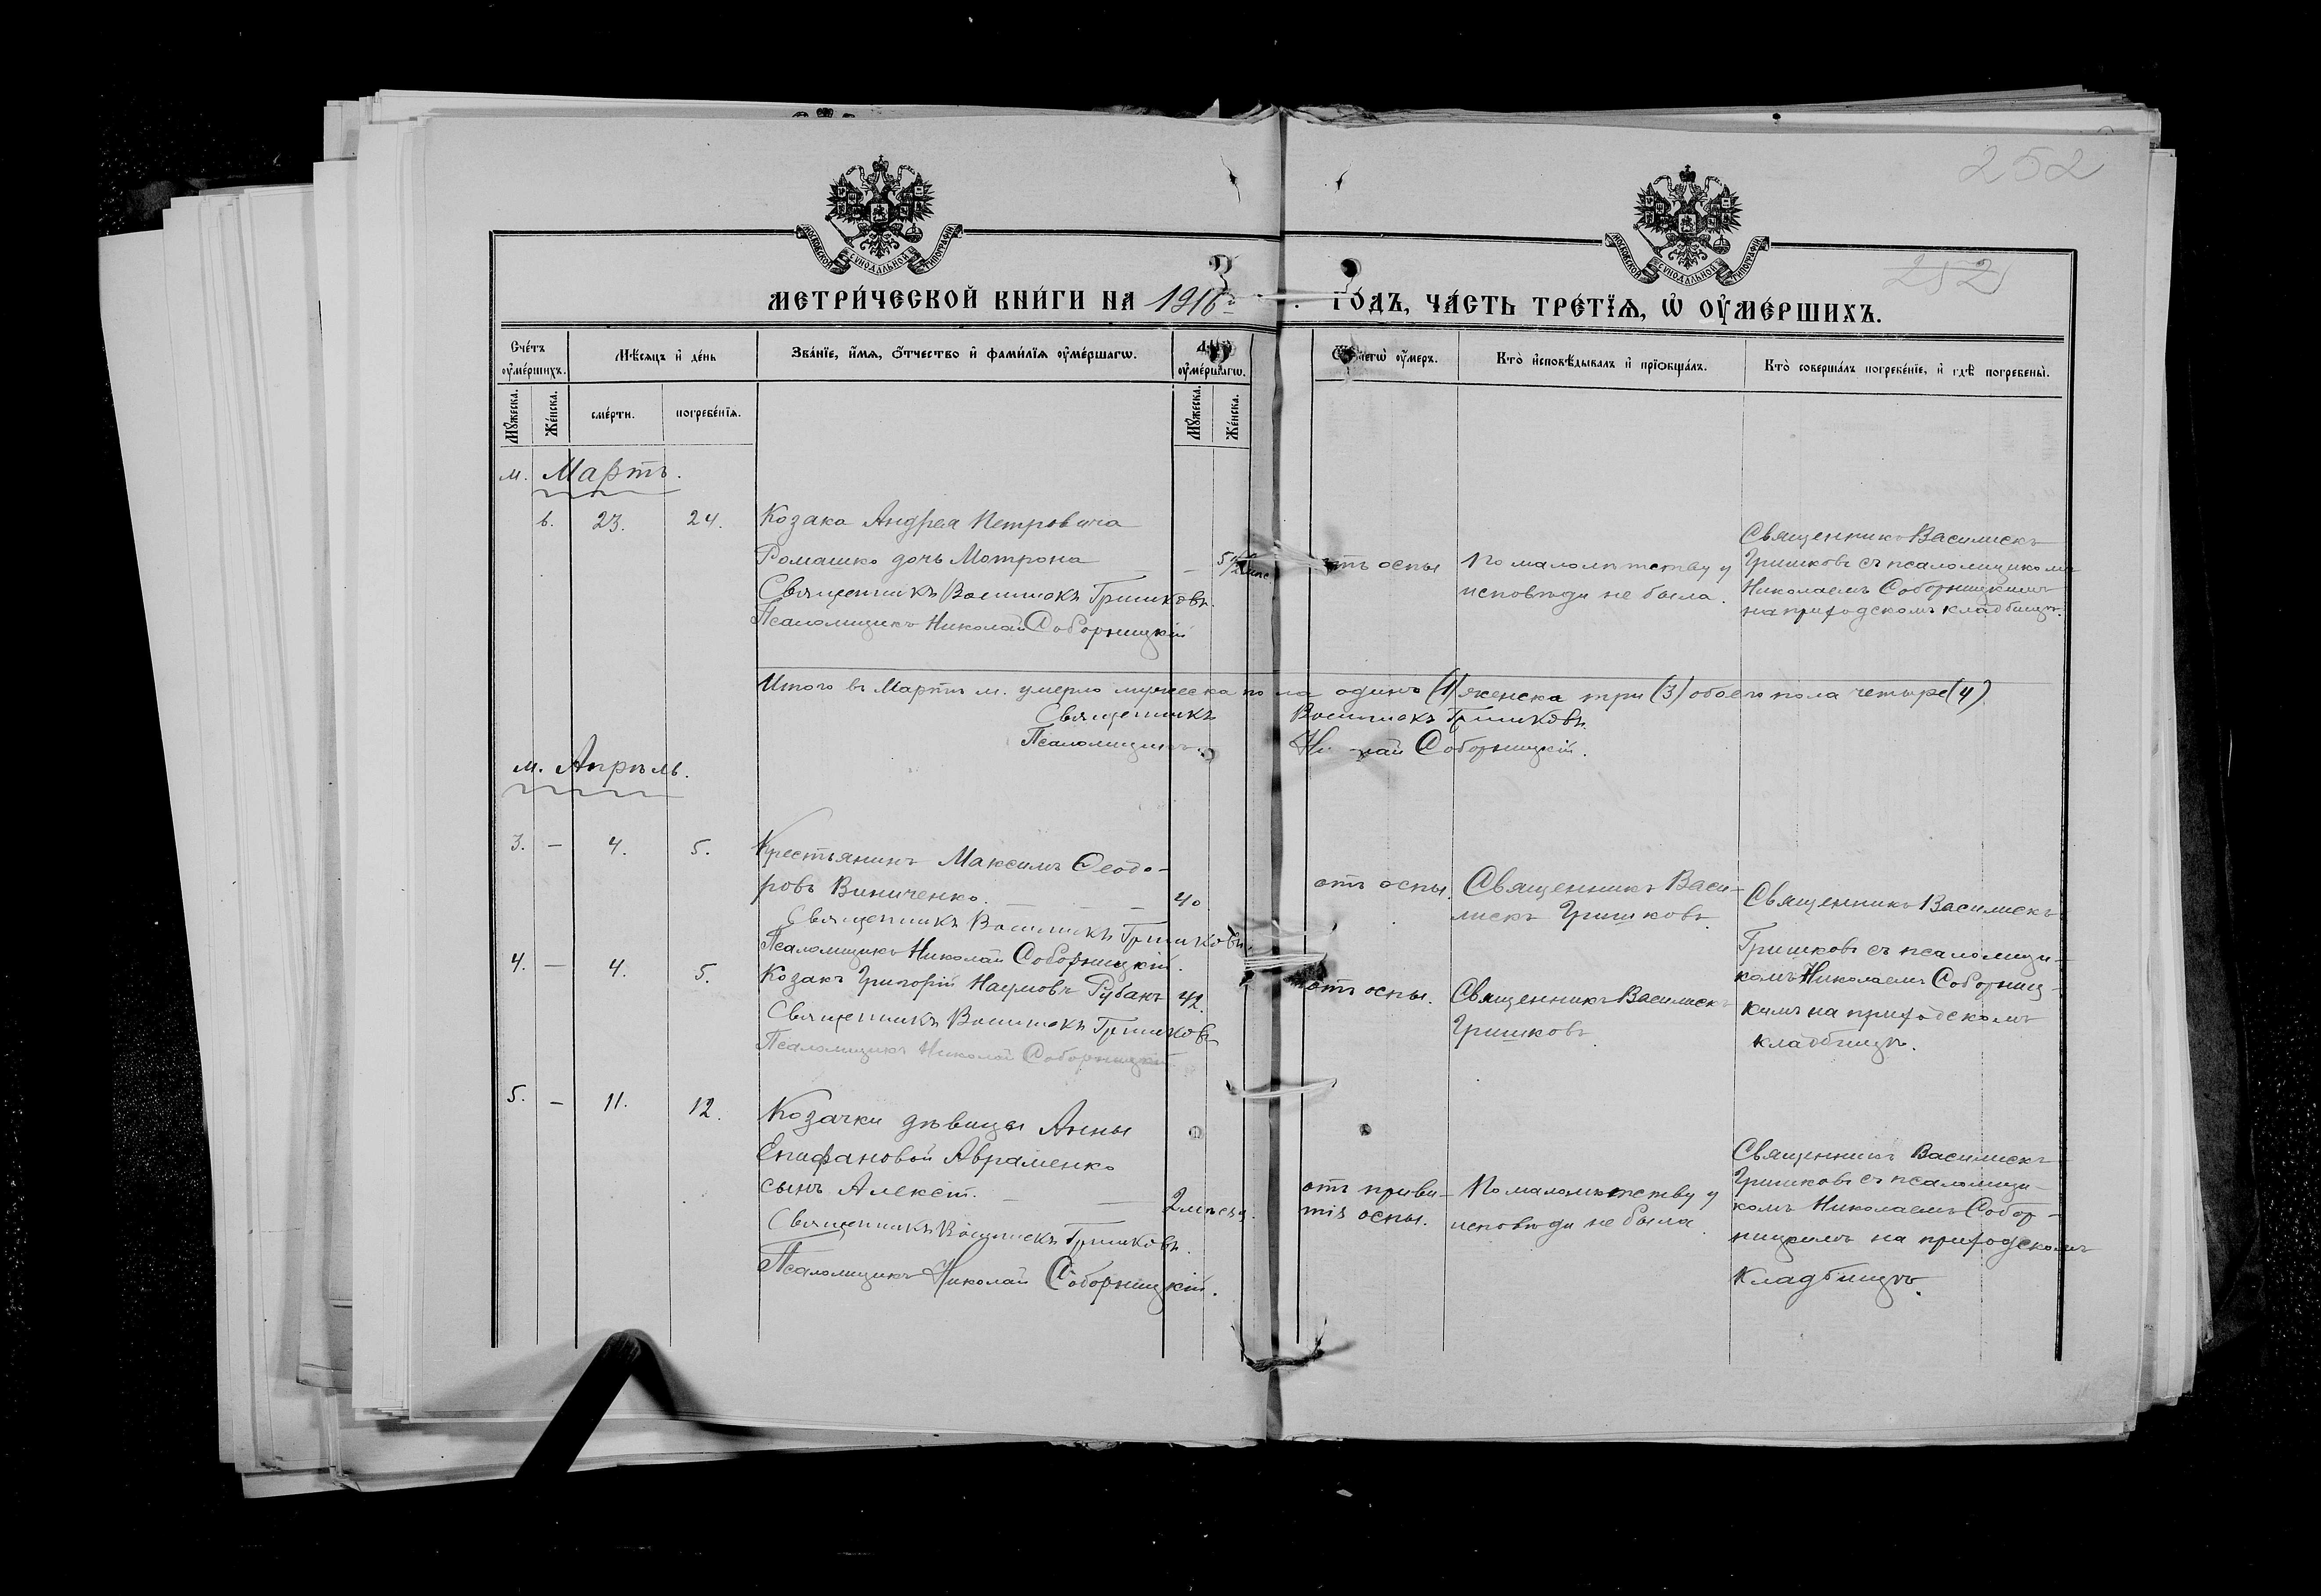 252
252
МОСКОВСКОЙ СѴНОДАЛЬНОЙ ТИПОГРАФІИ
МОСКОВСКОЙ СѴНОДАЛЬНОЙ ТИПОГРАФІИ
МЕТРИ́ЧЕСКОЙ КНИ́ГИ НА 1916 г.
ГО́ДЪ, ЧА́СТЬ ТРЕ́ТІѦ, Ѡ ОУМЕ́РШИХЪ.
Сче́тъ оуме́ршихъ.
Мѣсѧцъ и де́нь
Зва́нїе, и́мѧ, о́тчество и фами́лїѧ оуме́ршагѡ.
оуме́ршагѡ.
чегѡ̀ оу́меръ.
Кто̀ исповѣ́дывалъ и прїѡбща́лъ.
Кто̀ соверша́лъ погребе́нїе, и гдѣ̀ погребены̀.
Мꙋжеска.
Же́нска.
сме́рти.
погребе́нїѧ.
Мꙋжеска.
Же́нска.
м. Мартъ.
6. 23. 24. Козака Андрея Петровича
Ромашко дочь Мотрона
Священникъ Василискъ Гришковъ.
Псаломщикъ Николай Соборницкій
отъ оспы
По малолѣтству у
исповѣди не была.
Священникъ Василискъ
Гришковъ съ псаломщикомъ
Николаемъ Соборницкимъ
на приходскомъ кладбищѣ.
Итого въ Мартѣ м. умерло мужеска пола одинъ (1) женска три (3) обоего пола четыре (4)
Священникъ Василискъ Гришковъ
Псаломщикъ Николай Соборницкій.
м. Апрѣль.
3. — 4. 5. Крестьянинъ Максимъ Ѳеодо-
ровъ Виниченко. 40
Священникъ Василискъ Гришковъ.
Псаломщикъ Николай Соборницкій.
отъ оспы.
Священникъ Васи-
лискъ Гришковъ.
Священникъ Василискъ
Гришковъ съ псаломщи-
комъ Николаемъ Соборниц-
кимъ на приходскомъ
кладбищѣ.
4. — 4. 5. Козакъ Григорій Наумовъ Рубанъ 42.
Священникъ Василискъ Гришковъ
Псаломщикъ Николай Соборницкій
отъ оспы.
Священникъ Василискъ
Гришковъ.
5. — 11. 12. Козачки дѣвицы Анны
Епифановой Авраменко
сынъ Алексѣй. 2 мѣсяц.
Священникъ Василискъ Гришковъ.
Псаломщикъ Николай Соборницкій.
отъ приви-
тія оспы.
По малолѣтству у
исповѣди не была
Священникъ Василискъ
Гришковъ съ псаломщи-
комъ Николаемъ Собор-
ницкимъ на приходскомъ
кладбищѣ.